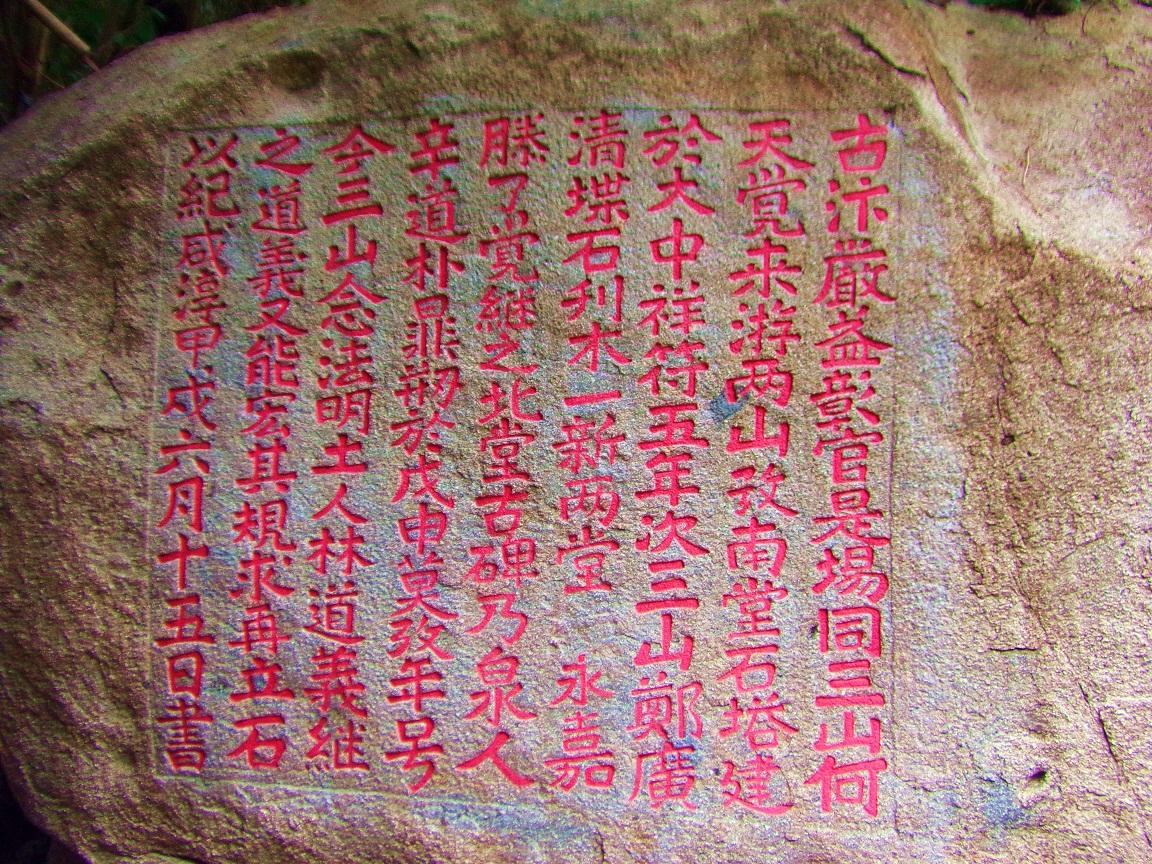 古汴嚴益彰官是場同三山何
天覺来游两山攷南堂石塔建
於大中祥符五年次三山鄭廣
清堞石刋木一新两堂 永嘉
滕了覺継之北堂古碑乃泉人
辛道朴鼂㓞於戊申莫攷年号
今三山念法明土人林道義继
之道義又能宏其規求再立石
以紀咸淳甲戍六月十五日書